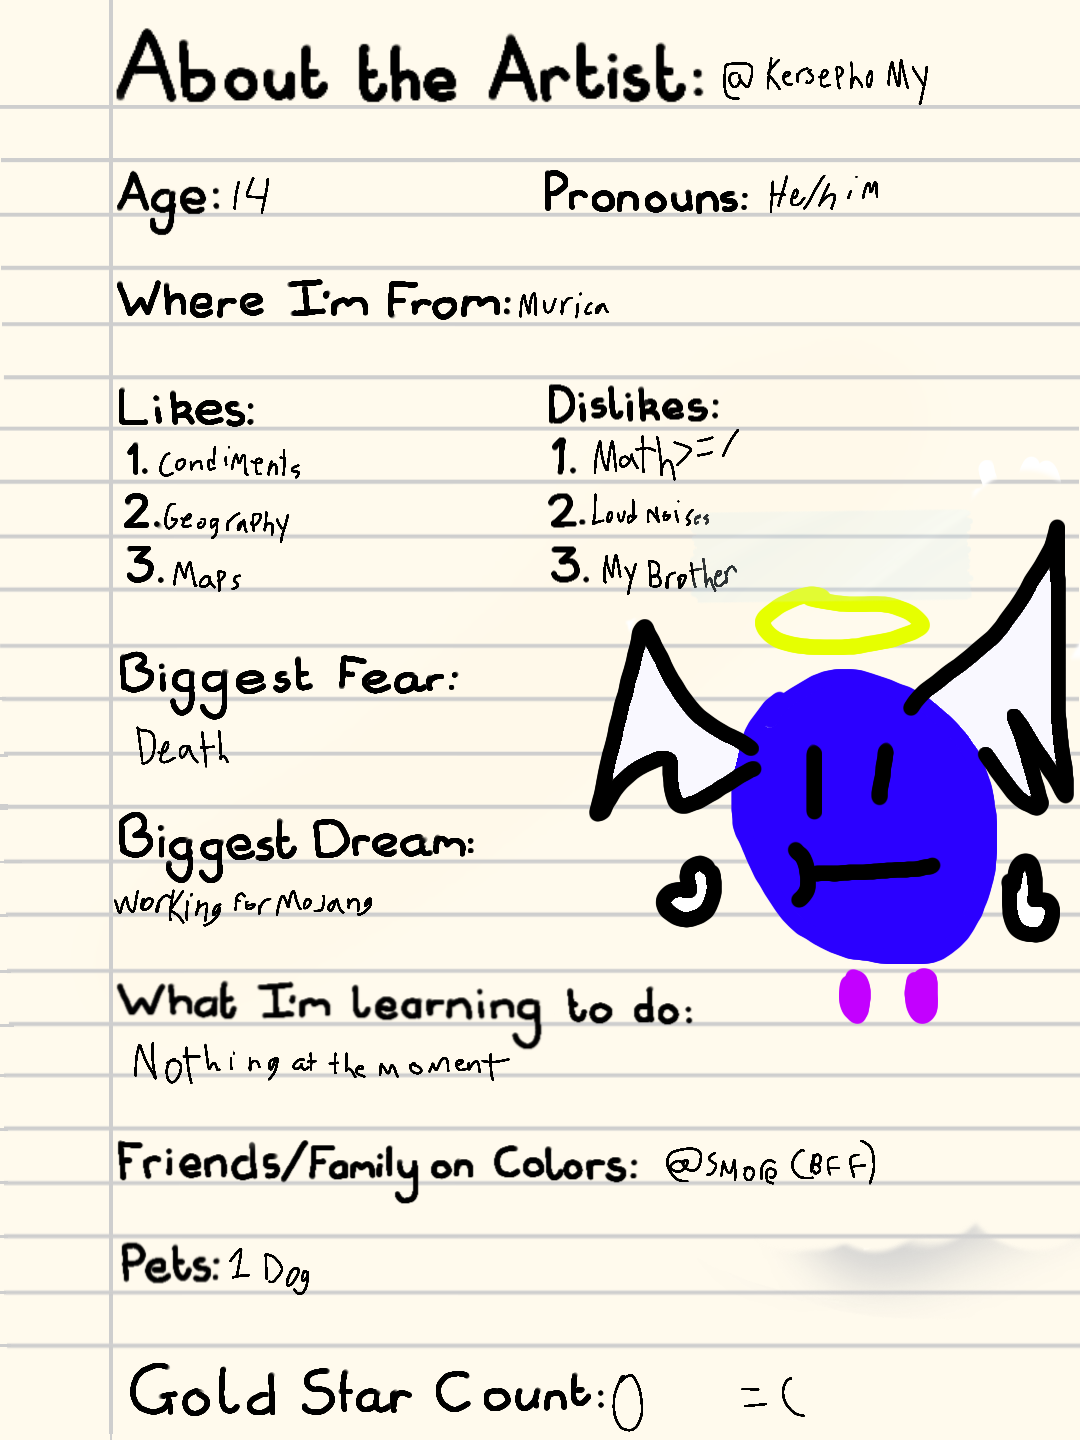 About the Artist: @KersephoMy
Age: 14 Pronouns: He/him
Where I'm From: Murica
Likes: Dislikes:
1. Condiments 1. Math >=/
2. Geography 2. Loud Noises
3. Maps 3. My Brother
Biggest Fear:
Death
Biggest Dream:
Working for Mojang
What I'm learning to do:
Nothing at the moment
Friends/Family on Colors: @SMore (BFF)
Pets: 1 Dog
Gold Star Count: 0 =(